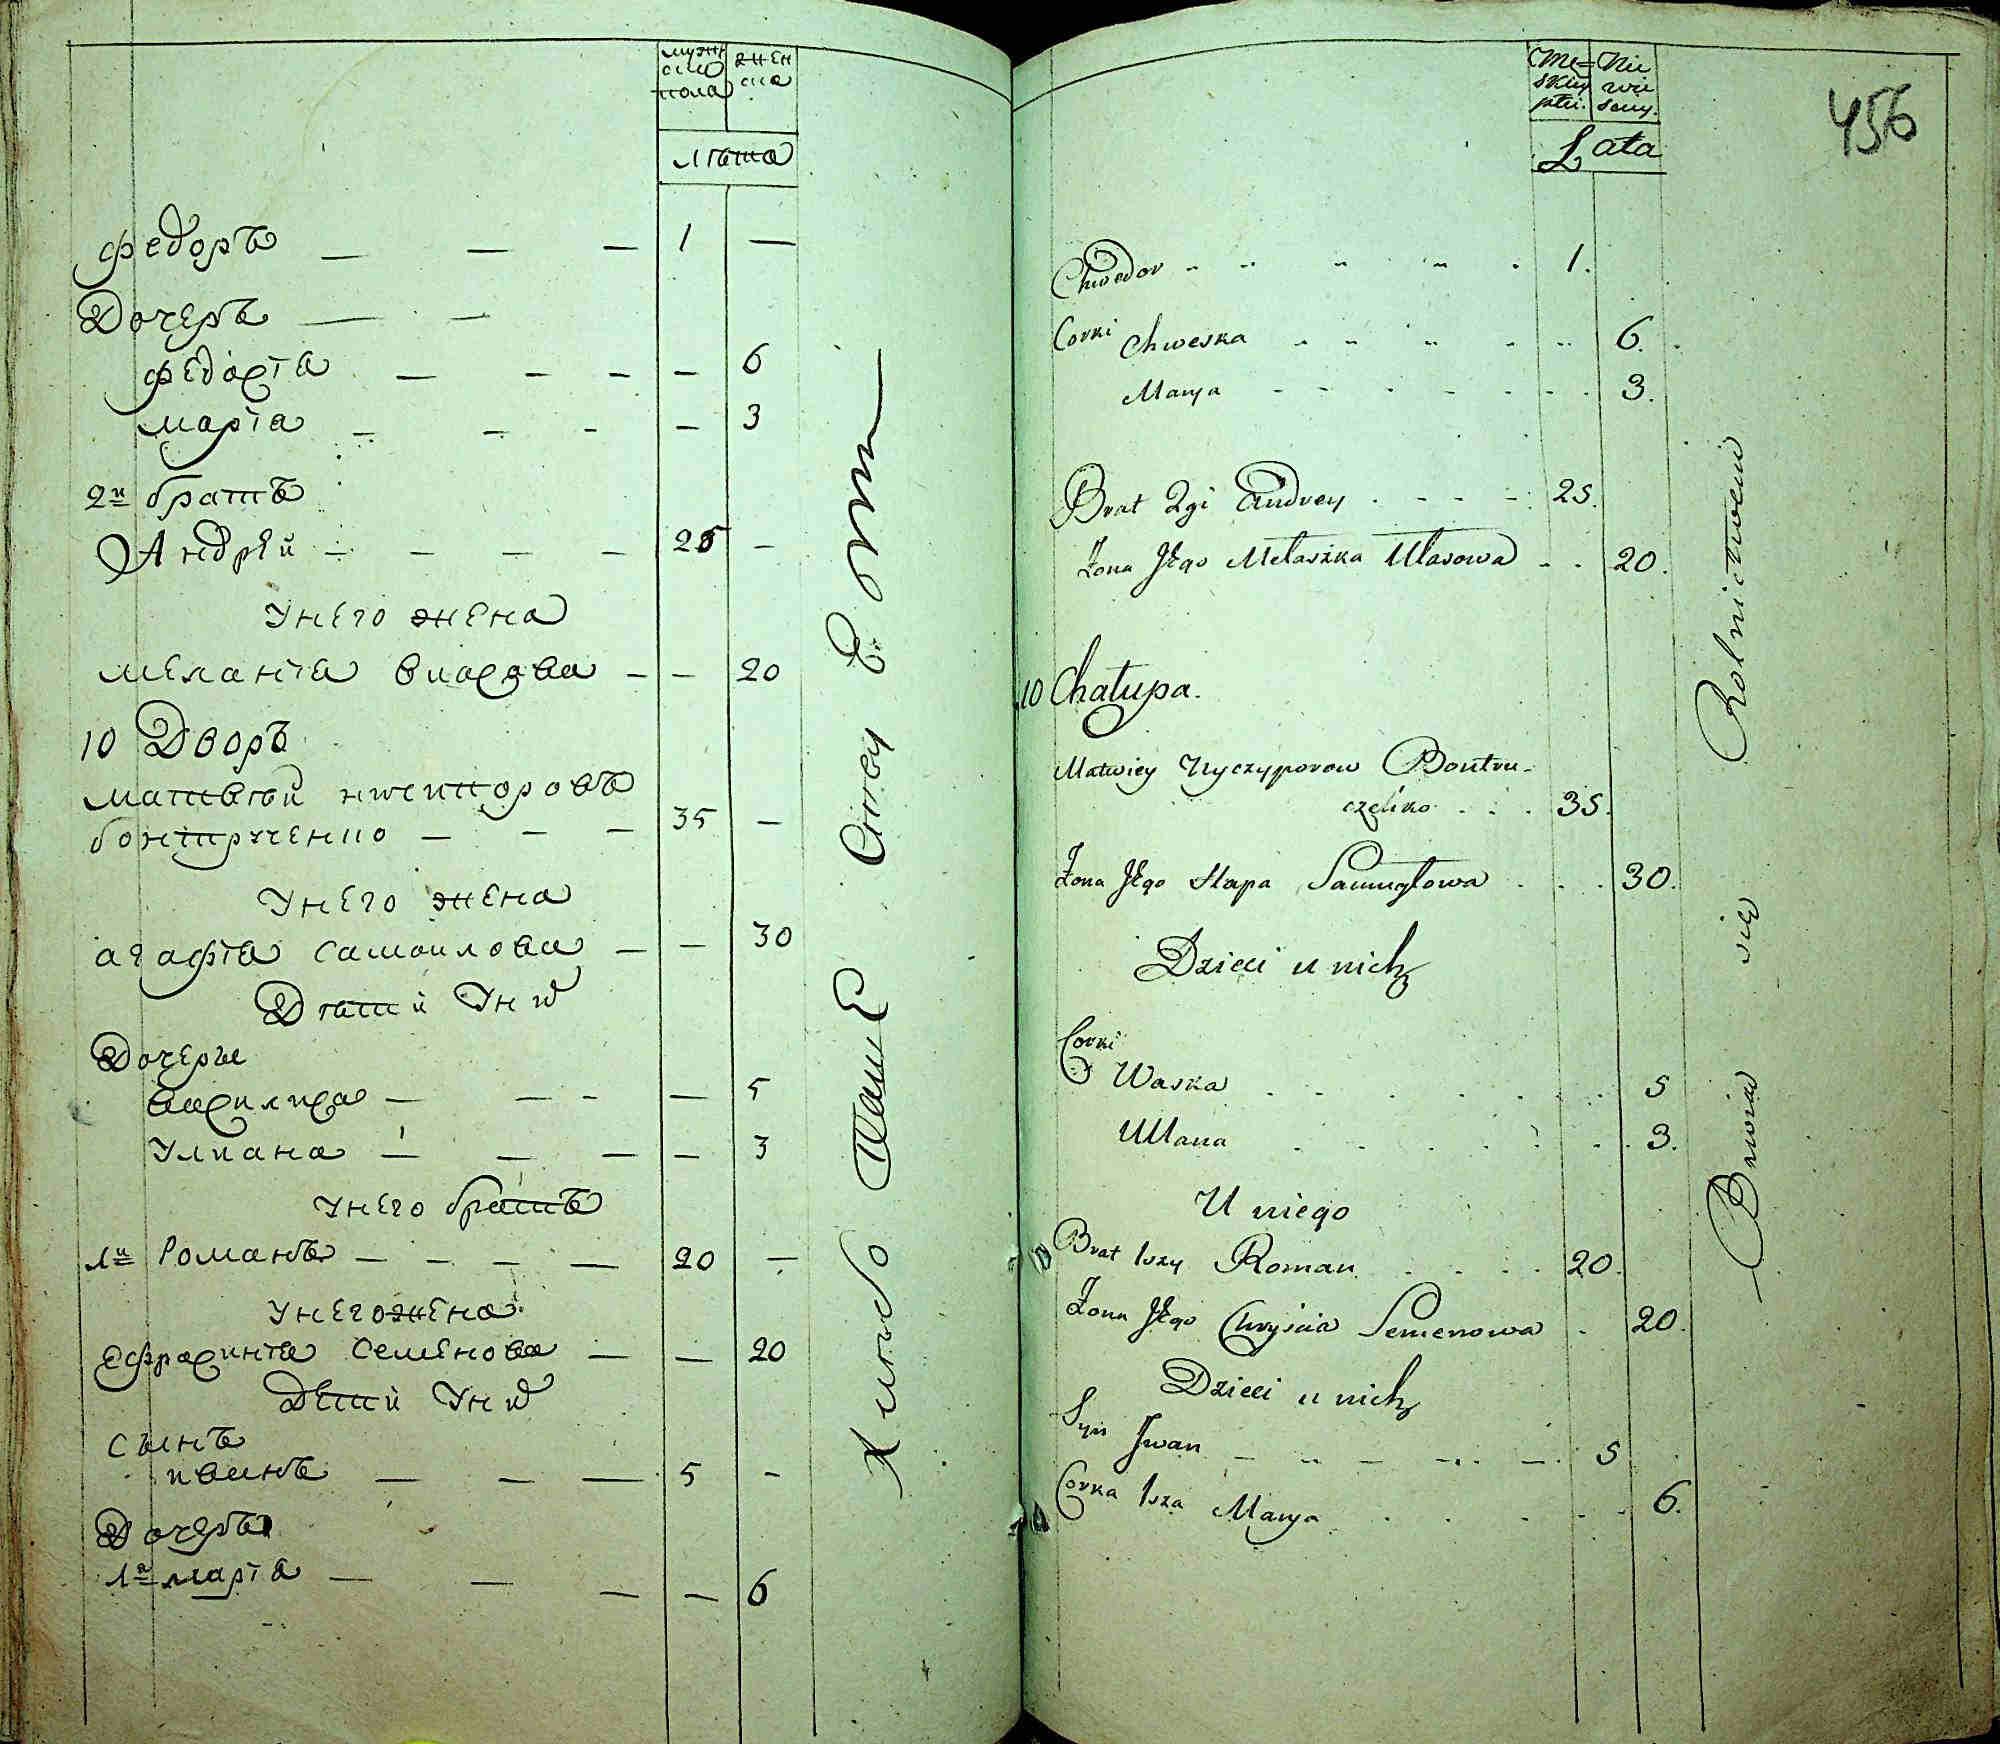 мужн
ско
пола
жен
ска
лѣта
федоръ — — — 1 —
Дочеръ — —
федосїа — — — — 6
марїа — — — — 3
2й братъ
Андрей — — — — 25 —
Унего жена
меланїа власова — — 20
10 Дворъ
матвѣй ничипоровъ
бонтрученко — — — 35 —
Унего жена
агафїа самоилова — — 30
Дѣтѝ Уни
Дочеры
василиса — — — — 5
Улиана — — — — 3
Унего братъ
1й Романъ — — — — 20 —
Унего жена
ефрасинїа Семенова — — 20
Дѣтѝ Уни
сынъ
иванъ — — — 5 —
Дочеръ
1я марїа — — — — 6
Me=
skiey
płci.
Nie
wie
sciey.
Lata
456
Chwedor 1.
Corki Chweska 6.
Marya 3.
Brat 2gi Andrey 25.
Żona Jego Melaszka Ułasowa 20.
10 Chałupa.
Matwiey Nyczyporow Bontru-
czenko 35.
Żona Jego Hapa Samuyłowa 30.
Dzieci u nich
Corki
Waska 5
Ullana 3.
U niego
Brat 1szy Roman 20.
Żona Jego Chryscia Semenowa 20.
Dzieci u nich
Syn Jwan 5
Corka 1sza Marya 6.
Bawią się Rolnictwem